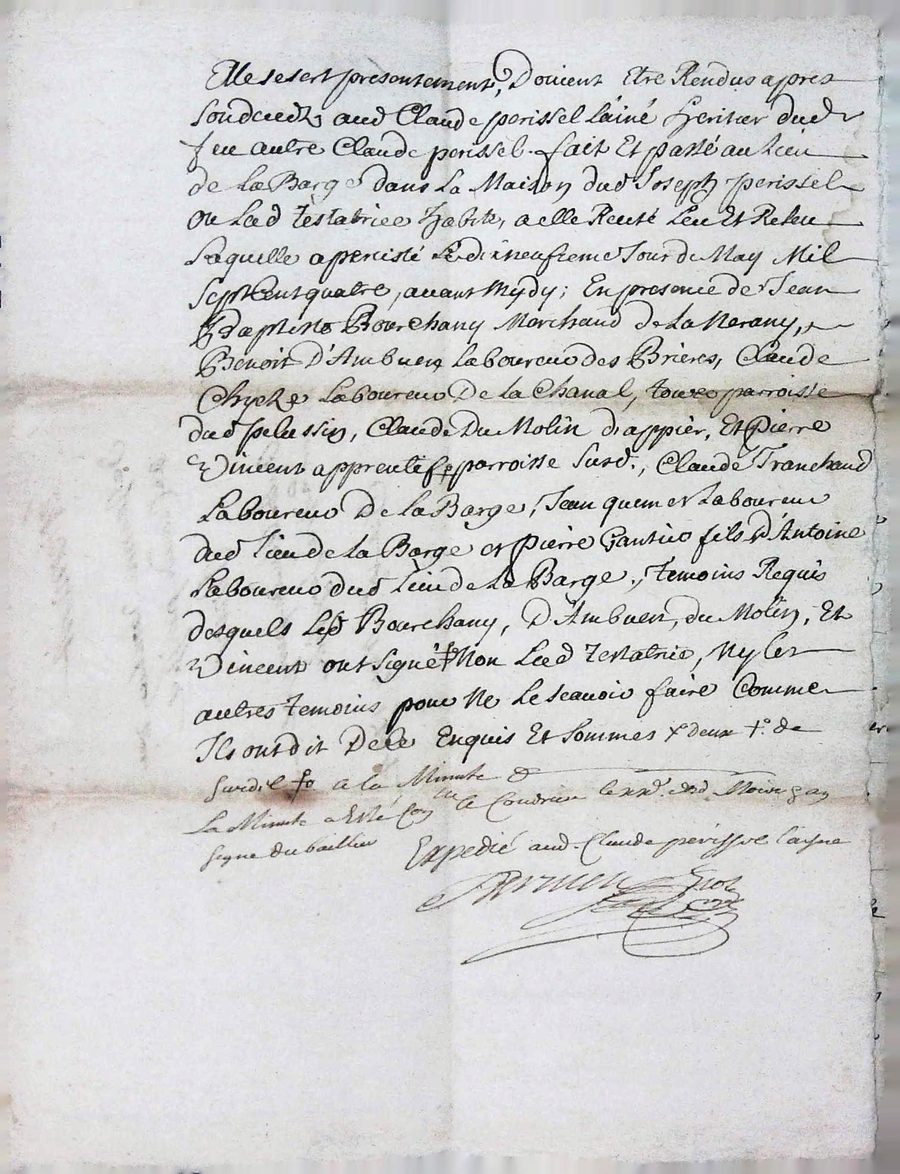 Elle se sert presentement, Doivent Etre Rendus apres
son deceds aud Claude perissel l'ainé heritier dud
feu autre Claude perissel. fait Et passé au Lieu
de La Barge dans La Maison dud Joseph perissel
ou Lad Testatrice habite, a elle Leu Et Releu
Laquelle a percisté Le dixneufieme Jour du May Mil
Sept Cent quatre, avant Mydy; En presence de Sr Jean
Baptiste Bourchany Marchand de La
Benoit D'Ambuent Laboureur des Brieres, Claude
Laboureur De La Chanal, tous parroisse
dud pelussin, Claude Du Molin d'appier, Et pierre
Vincent apprentif parroisse Susd., Claude Tranchand
Laboureur De La Barge, Jean quemet Laboureur
dud Lieu de La Barge et pierre fils d'Antoine
Laboureur dud Lieu de La Barge, Temoins Requis
desquels Led Bourchany, D'Ambuent, du Molin, Et
Vincent ont signé Non Lad Testatrice, Ny les
autres Temoins pour Ne Le scavoir faire Comme
Ils ont dit De ce Enquis Et Sommes deux de
a la Minute
La Minute a Esté a Condrieu
signe du baillieu
Expedié aud. Claude perissel l'ayné